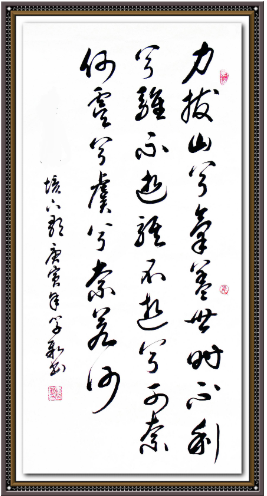 力拔山兮氣蓋世時不利
兮騅不逝騅不逝兮可奈
何虞兮虞兮奈若何
垓下歌庚寅年书